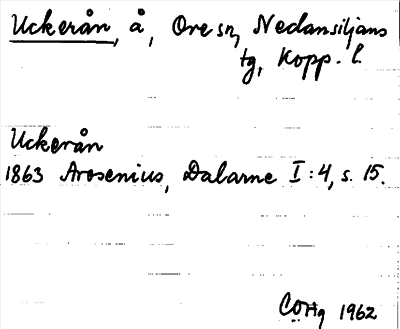 Uckerån, å, Ore sn, Nedansiljans
tg, Kopp. l.
Uckerån
1863 Arosenius, Dalarne I:4, s. 15.
1962